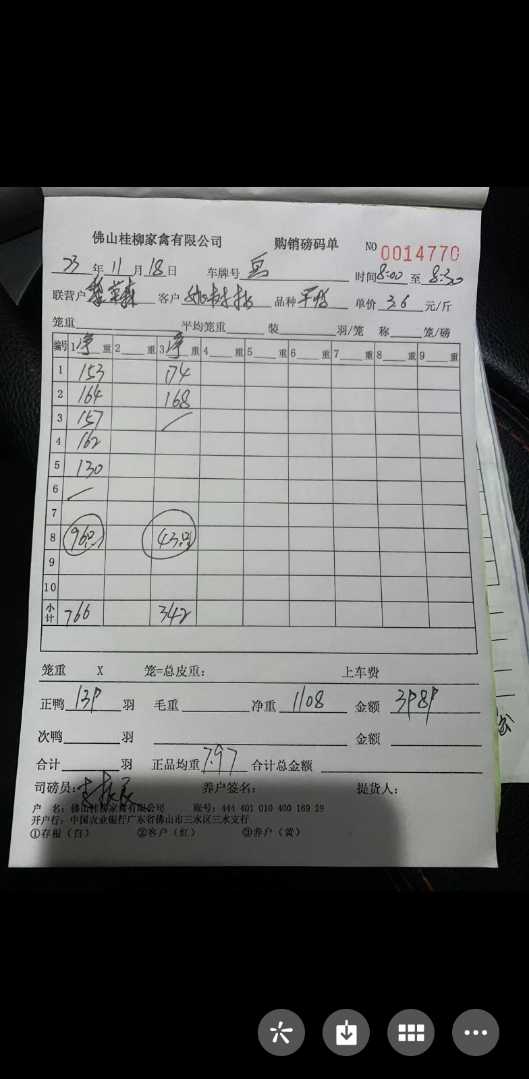 佛山桂柳家禽有限公司 购销磅码单 NO 0014770
23 年 11 月 18 日 车牌号 时间 8:00 至 8:30
联营户 客户 品种 单价 3.6 元/斤
笼重 平均笼重 装 羽/笼 称 笼/磅
编号 1 重 2 重 3 重 4 重 5 重 6 重 7 重 8 重 9 重
1 153 174
2 164 168
3 157
4 162
5 130
6
7
8 96只 43只
9
10
小计 766 342
笼重 X 笼=总皮重: 上车费
正鸭 139 羽 毛重 净重 1108 金额 3989
次鸭 羽 金额
合计 羽 正品均重 7.97 合计总金额
司磅员: 养户签名: 提货人:
户 名: 佛山桂柳家禽有限公司 账号: 444 401 010 400 169 29
开户行: 中国农业银行广东省佛山市三水区三水支行
①存根(白) ②客户(红) ③养户(黄)